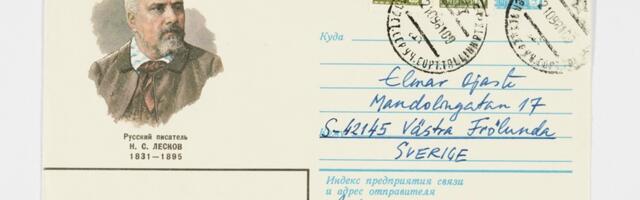 Русский писатель
Н. С. ЛЕСКОВ
1831—1895
Куда
Elmar Ojaste
Mandolingatan 17
S-42145 Västra Frölunda
SVERIGE
Индекс предприятия связи
и адрес отправителя